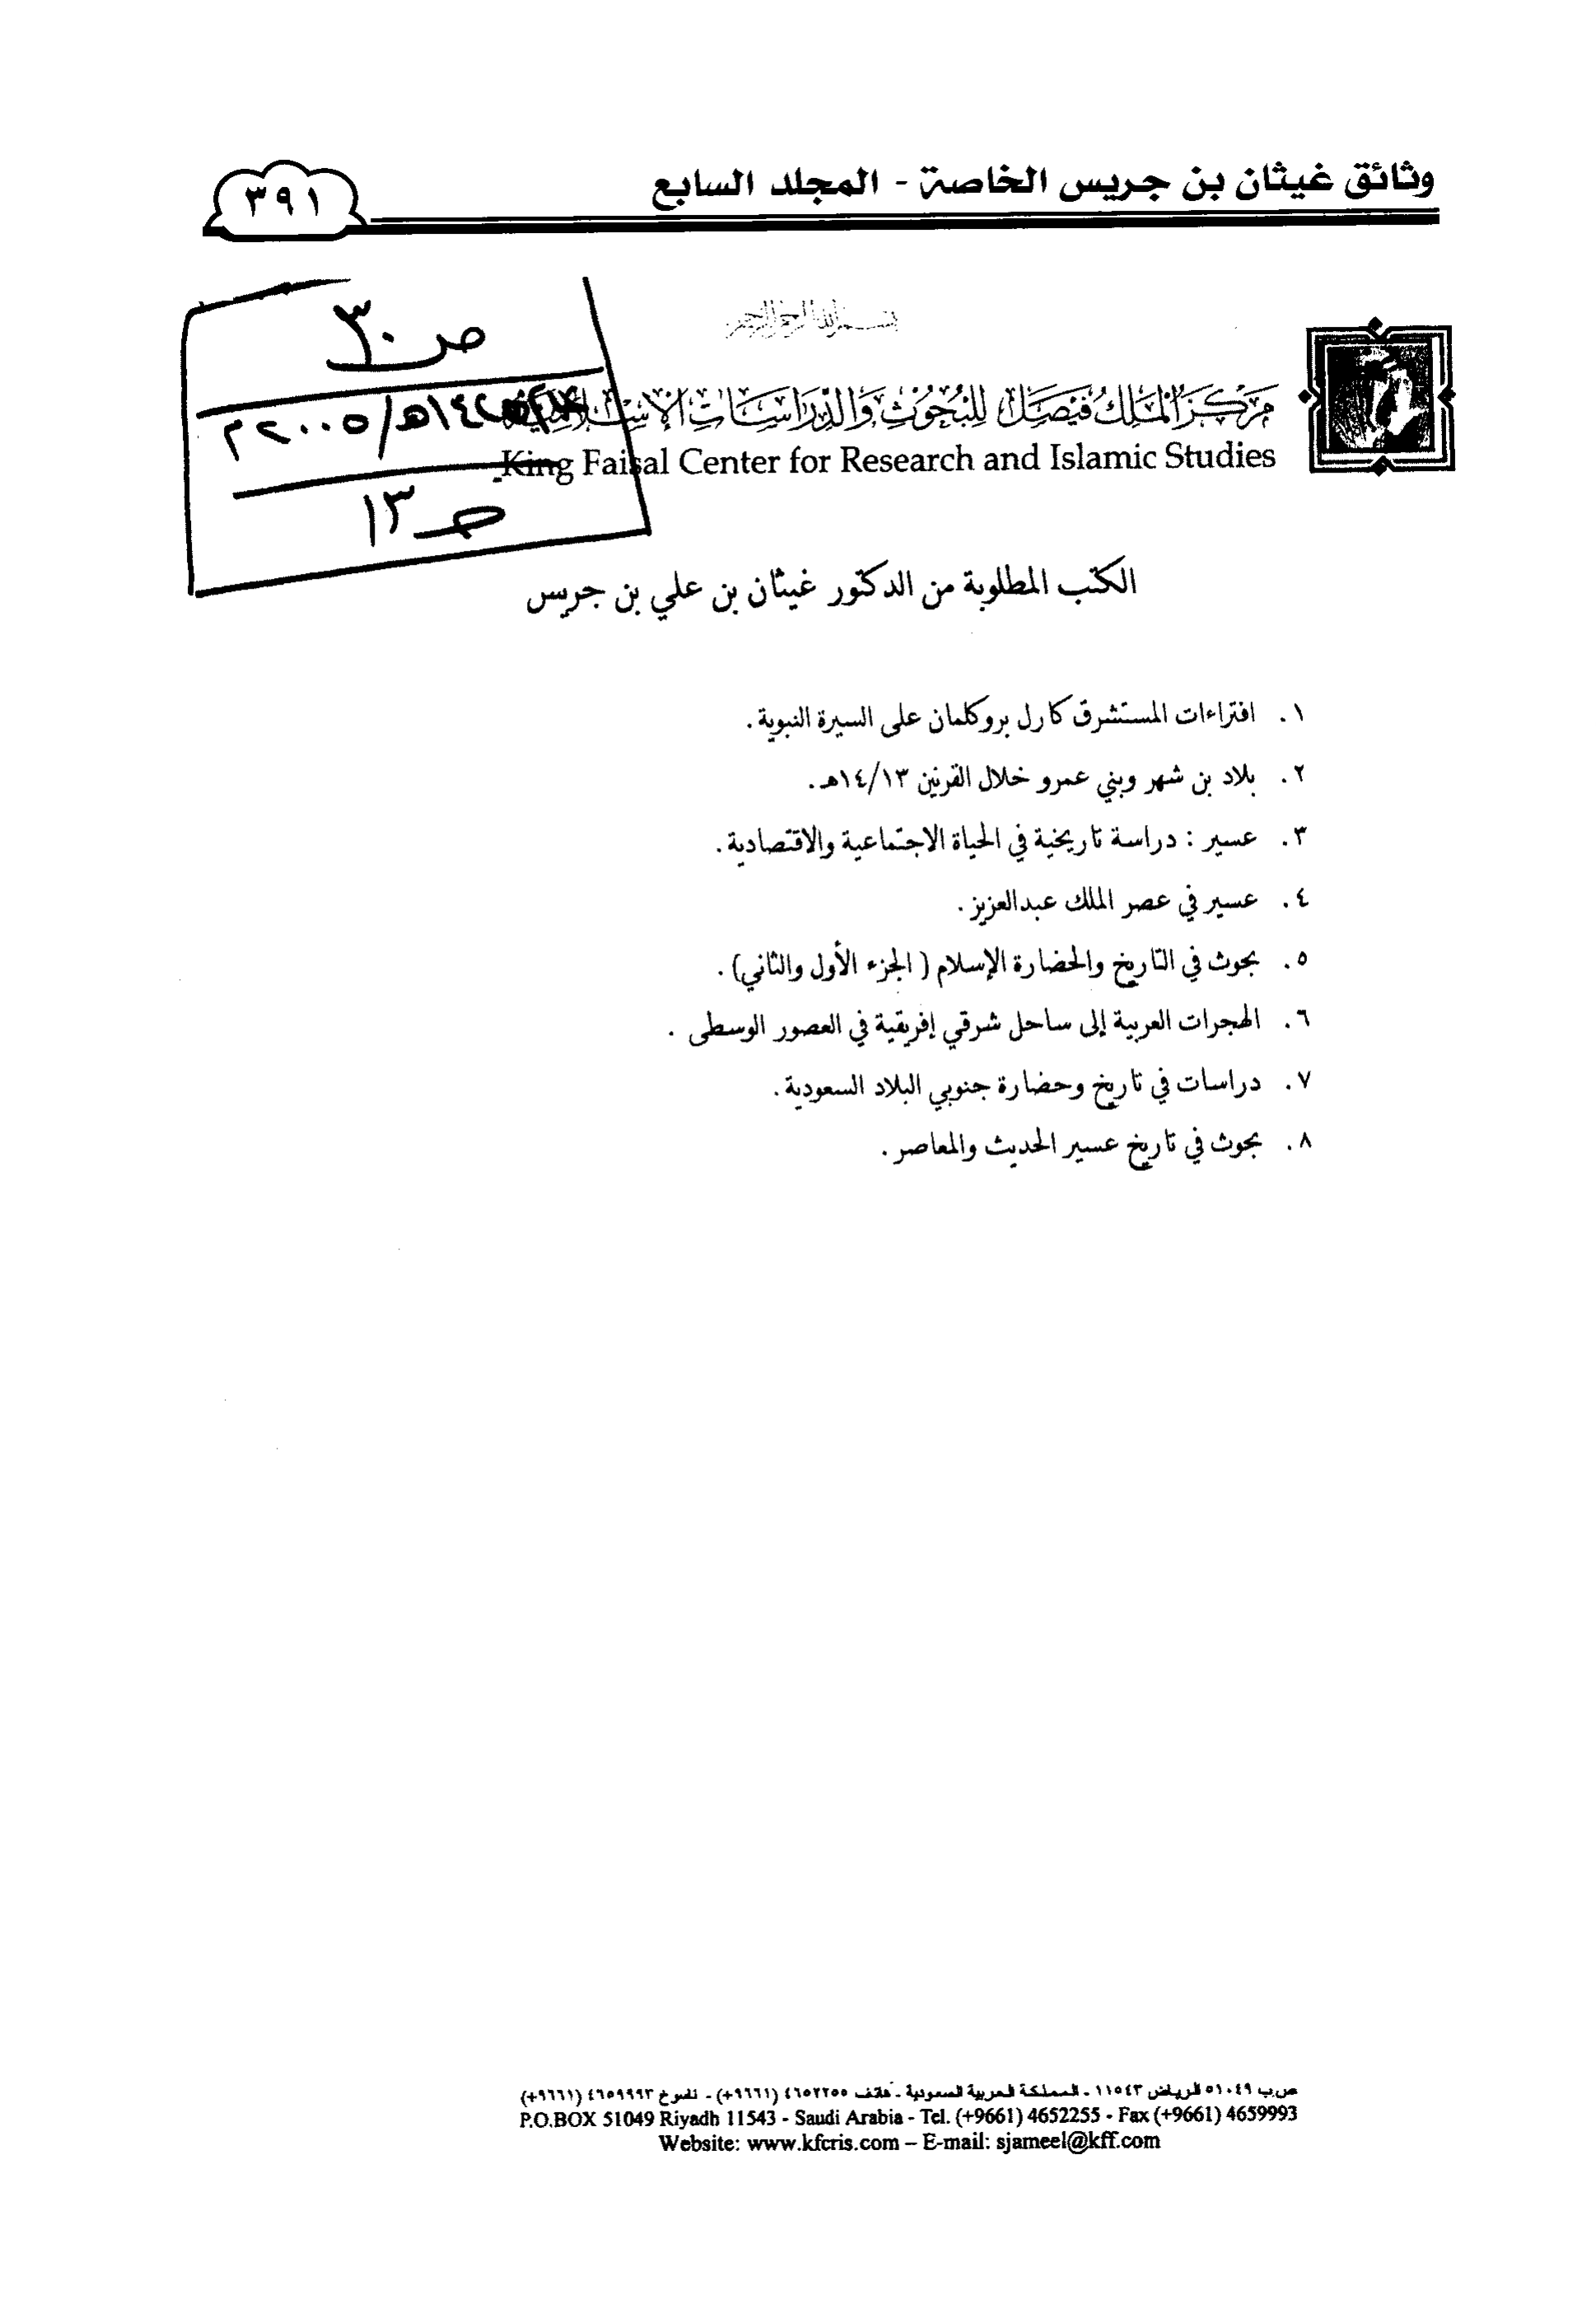 وثائق غيثان بن جريس الخاصة - المجلد السابع
٣٩١
بسم الله الرحمن الرحيم
ص ٣٠
مركز الملك فيصل للبحوث والدراسات الإسلامية
هـ/٢٠٠٥م
King Faisal Center for Research and Islamic Studies
١٣
الكتب المطلوبة من الدكتور غيثان بن علي بن جريس
١. افتراءات المستشرق كارل بروكلمان على السيرة النبوية.
٢. بلاد بن شهر وبني عمرو خلال القرنين ١٤/١٣هـ.
٣. عسير : دراسة تاريخية في الحياة الاجتماعية والاقتصادية.
٤. عسير في عصر الملك عبدالعزيز.
٥. بحوث في التاريخ والحضارة الإسلام ( الجزء الأول والثاني).
٦. الهجرات العربية إلى ساحل شرقي إفريقية في العصور الوسطى .
٧. دراسات في تاريخ وحضارة جنوبي البلاد السعودية.
٨. بحوث في تاريخ عسير الحديث والمعاصر.
ص.ب ٥١٠٤٩ الرياض ١١٥٤٣ - المملكة العربية السعودية - هاتف ٤٦٥٢٢٥٥ (٩٦٦١+) - ناسوخ ٤٦٥٩٩٩٣ (٩٦٦١+)
P.O.BOX 51049 Riyadh 11543 - Saudi Arabia - Tel. (+9661) 4652255 - Fax (+9661) 4659993
Website: www.kfcris.com – E-mail: sjameel@kff.com